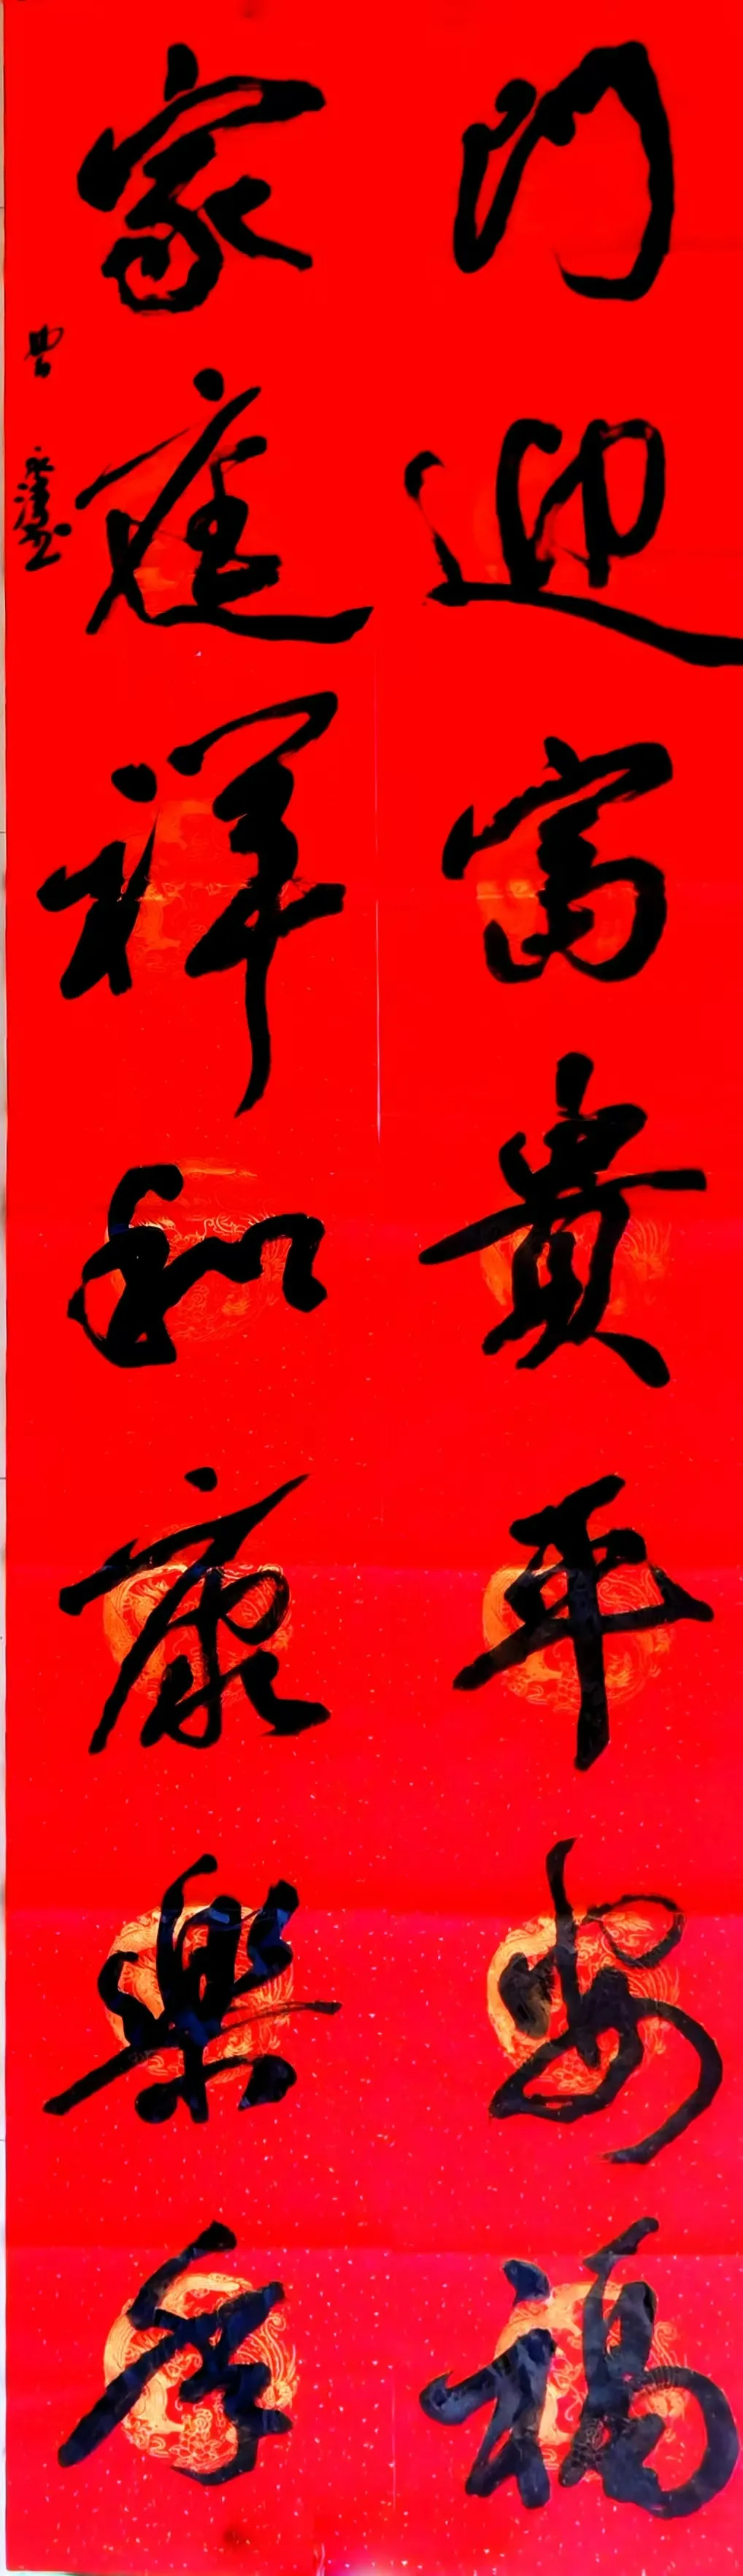 門迎富貴平安福
家庭祥和康樂
曹永书